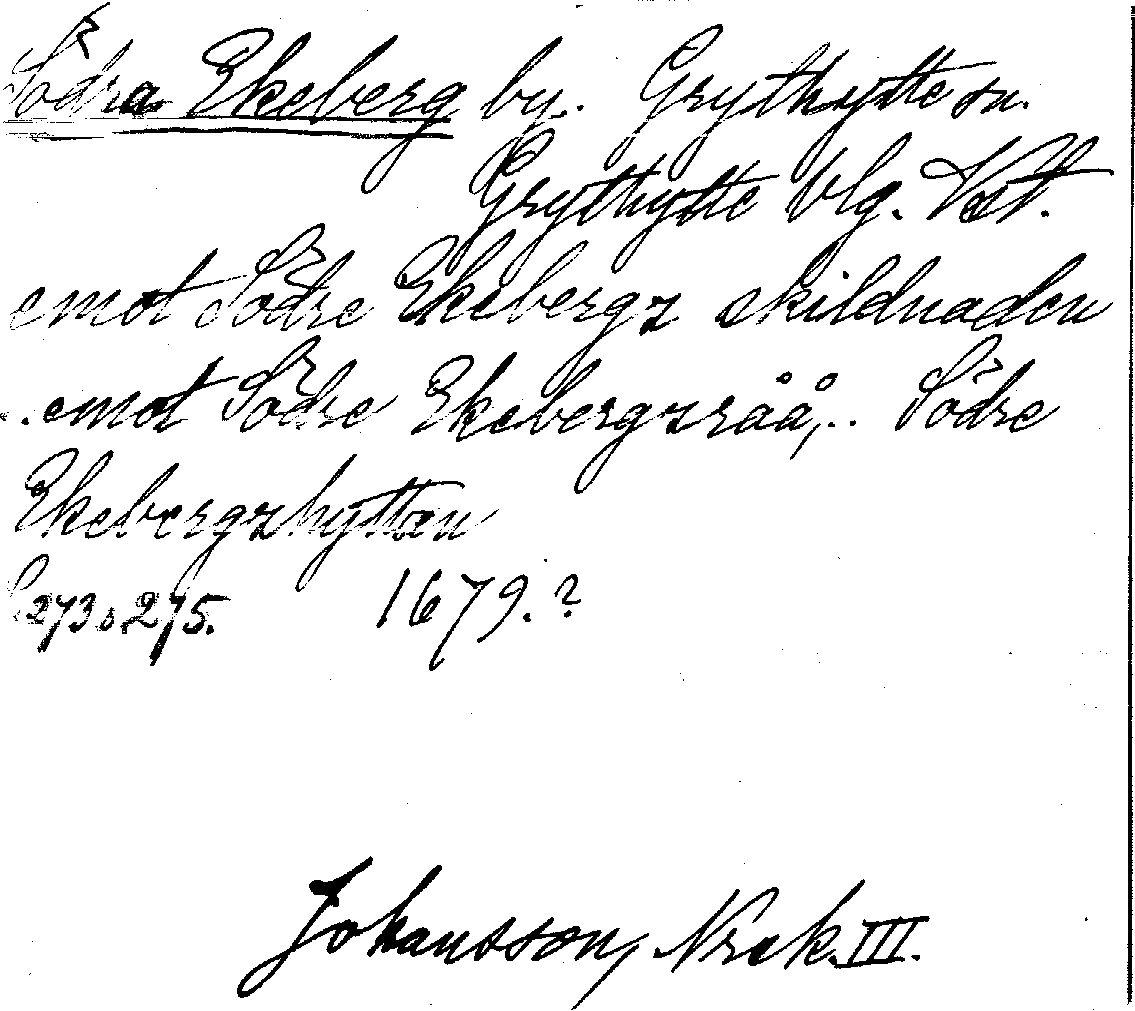 Södra Ekeberg by. Grythytte sn.
Grythytte blg. Vstl.
emot Södre Ekebergz skildnaden
..emot Södre Ekebergzråå,.. Södre
Ekebergzhyttan
S. 273 o. 275. 1679.?
Johansson, Norak. III.